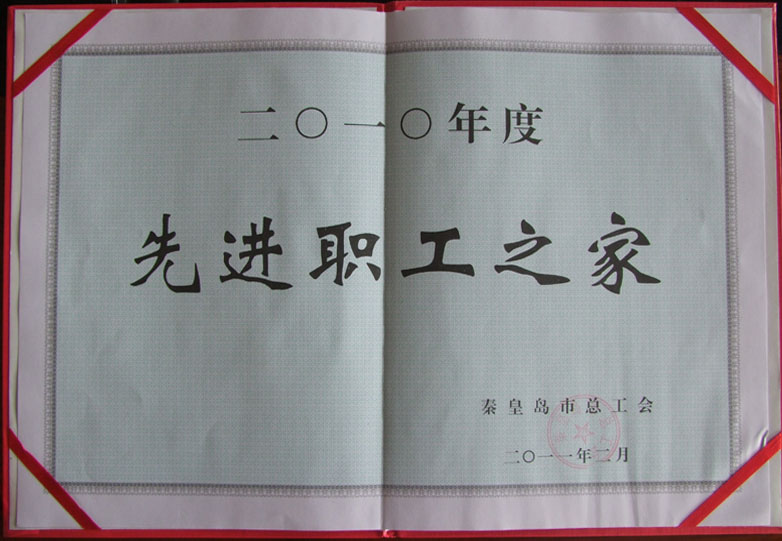 二〇一〇年度
先进职工之家
秦皇岛市总工会
二〇一一年二月